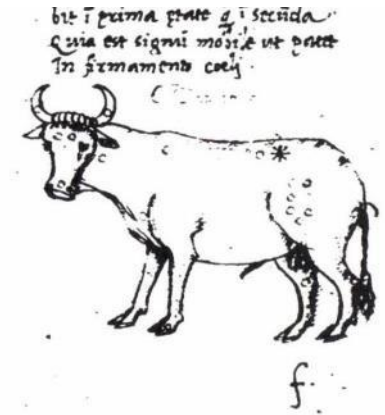 bit ī prima etate q̄ ī secūda
Quia est signū mobile vt patet
In firmamento coeli
f.